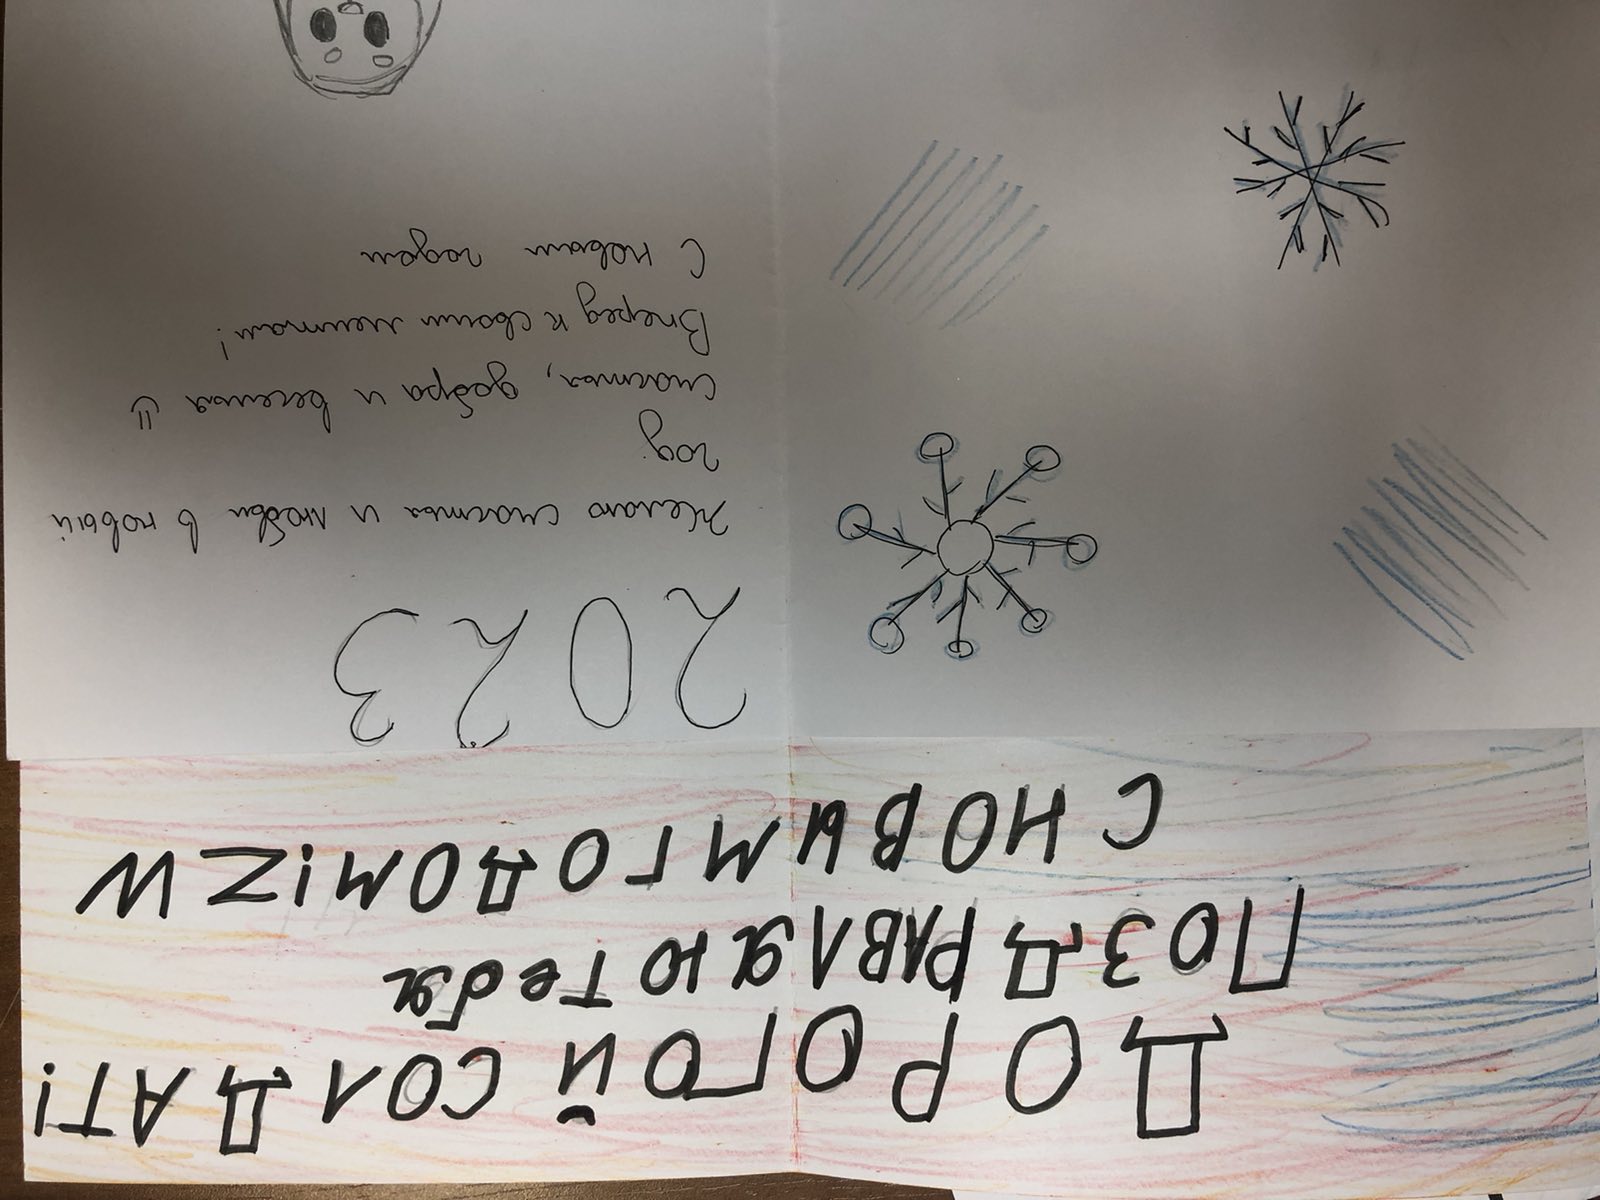 ДОРОГОЙ СОЛДАТ!
ПОЗДРАВЛЯЮ тебя
С НОВЫМ ГОДОМ! Z W
2023
Желаю счастья и любви в новый
год
счастья, добра и веселья :)
Вперед к своим мечтам!
С новым годом